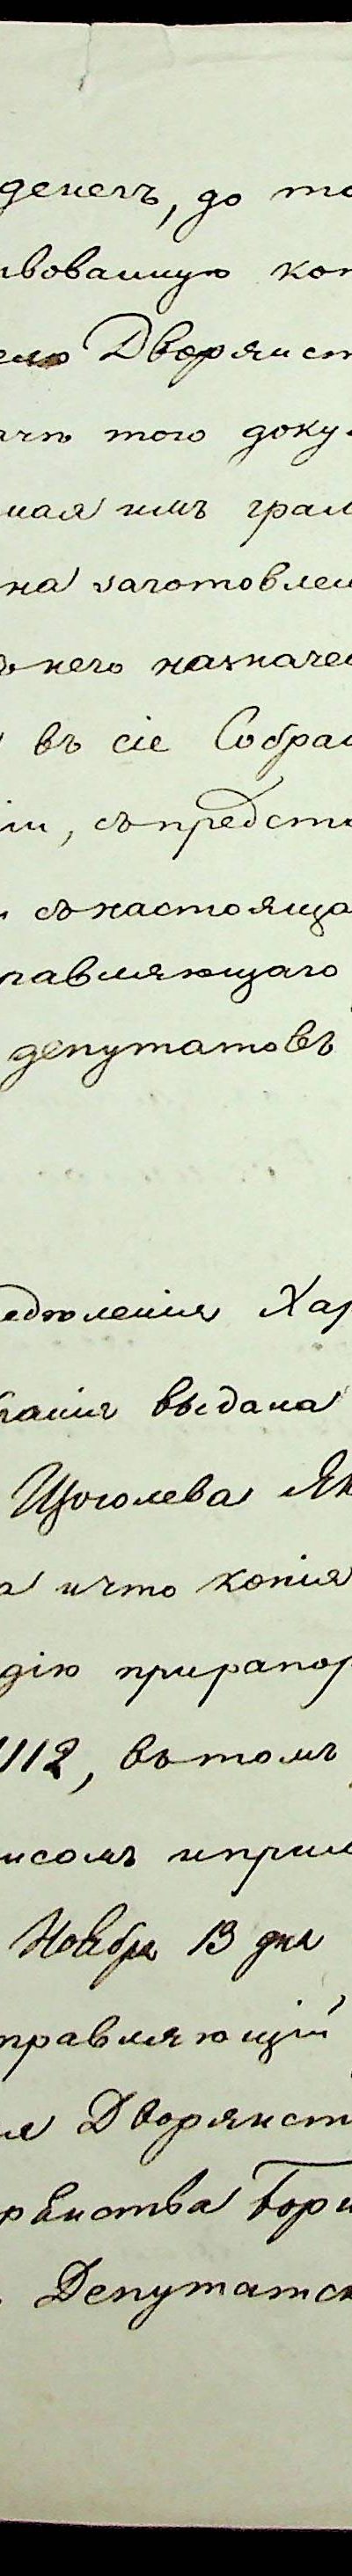 денегъ, до то
твованную коп
ено Дворянст
ачѣ того доку
ная имъ грам
на заготовлен
него назначе
въ сіе Собран
іи, съ предста
съ настояща
правляющаго
депутатовъ
едѣленія Хар
ранія выдана
Щоголева Як
а и что копія
дію при рапор
1112, въ томъ
исомъ и прил
Ноября 13 дня
правляющій
ля Дворянст
рянства Бори
Депутатск